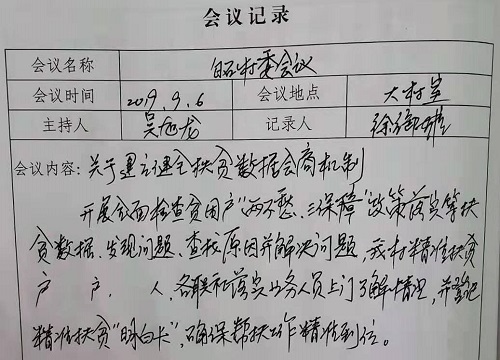 会议记录
会议名称 村委会议
会议时间 2019.9.6 会议地点
主持人 吴旭龙 记录人 徐
会议内容：关于建立健全扶贫数据会商机制
开展全面检查贫困户"两不愁、三保障"政策落实等扶
贫数据、发现问题、查找原因并解决问题，我村精准扶贫
户 户 人，各联社落实业务人员上门了解情况，并登记
精准扶贫"明白卡"，确保帮扶工作精准到位。